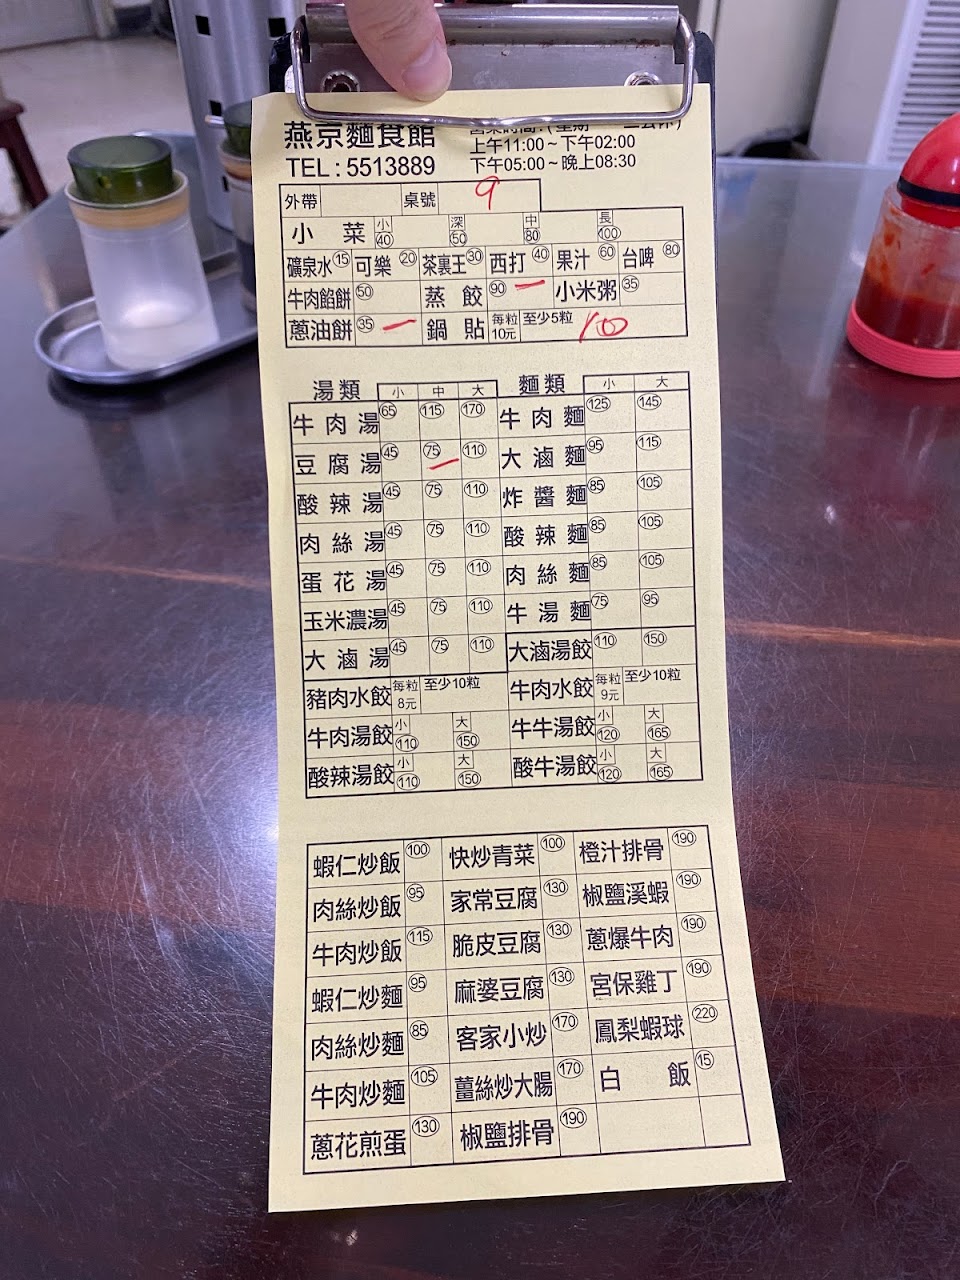 燕京麵食館
TEL : 5513889
上午11:00 ~ 下午02:00
下午05:00 ~ 晚上08:30
外帶 桌號 9
小菜 小 40 深 50 中 80 長 100
礦泉水 15 可樂 20 茶裏王 30 西打 40 果汁 60 台啤 80
牛肉餡餅 50 蒸餃 90 小米粥 35
蔥油餅 35 鍋貼 每粒10元 至少5粒
湯類 小 中 大 麵類 小 大
牛肉湯 65 115 170 牛肉麵 125 145
豆腐湯 45 75 110 大滷麵 95 115
酸辣湯 45 75 110 炸醬麵 85 105
肉絲湯 45 75 110 酸辣麵 85 105
蛋花湯 45 75 110 肉絲麵 85 105
玉米濃湯 45 75 110 牛湯麵 75 95
大滷湯 45 75 110 大滷湯餃 110 150
豬肉水餃 每粒8元 至少10粒 牛肉水餃 每粒9元 至少10粒
牛肉湯餃 小 110 大 150 牛牛湯餃 小 120 大 165
酸辣湯餃 小 110 大 150 酸牛湯餃 小 120 大 165
蝦仁炒飯 100 快炒青菜 100 橙汁排骨 190
肉絲炒飯 95 家常豆腐 130 椒鹽溪蝦 190
牛肉炒飯 115 脆皮豆腐 130 蔥爆牛肉 190
蝦仁炒麵 95 麻婆豆腐 130 宮保雞丁 190
肉絲炒麵 85 客家小炒 170 鳳梨蝦球 220
牛肉炒麵 105 薑絲炒大腸 170 白飯 15
蔥花煎蛋 130 椒鹽排骨 190